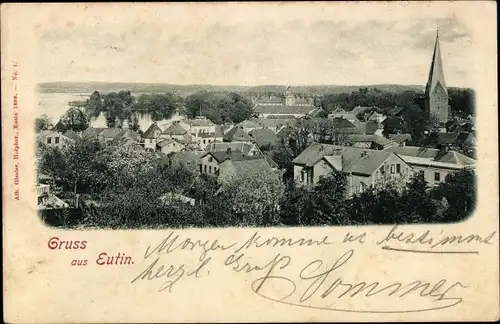 Alb. Giesler, Hofphot., Eutin 1898. – No. 1.
Gruss
aus Eutin.
Morgen komme ich bestimmt
herzl. Gruß Sommer